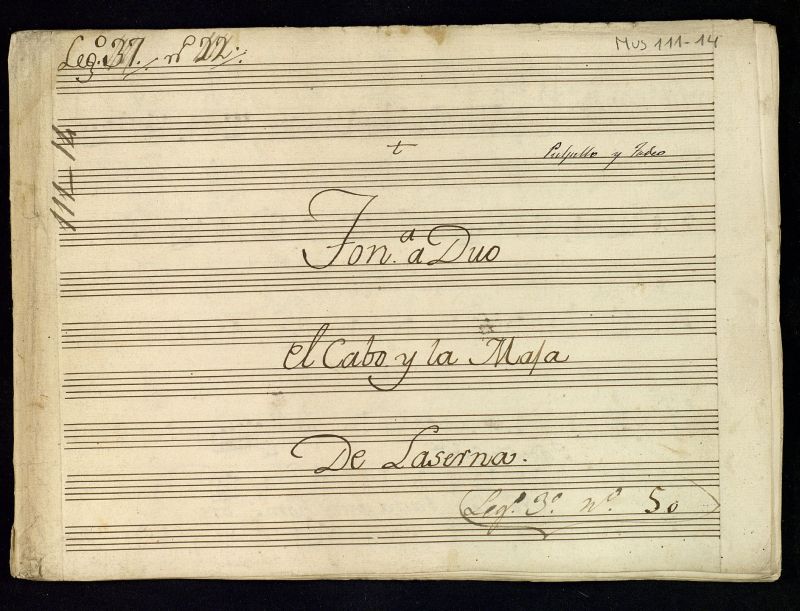 Leg.º 37. nº 22.
Mus 111-14
111-14
Pulpillo y Tadeo
Ton.ª a Duo
el Cabo y la Maja
De Laserna.
(Leg.º 3.º n.º 50)